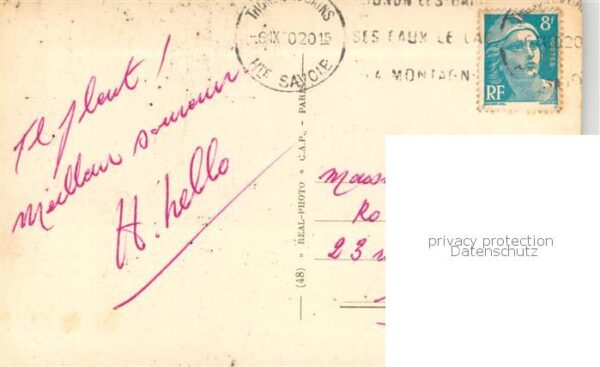 THONON LES BAINS
9 IX 2015
HTE SAVOIE
THONON LES BAINS
SES EAUX LE LA
LA MONTAGN
8F
POSTES
RF
Il pleut !
Meilleur souvenir
H. hello
(48) * REAL-PHOTO * C.A.P. - PARIS
Mons
Ro
23
privacy protection
Datenschutz